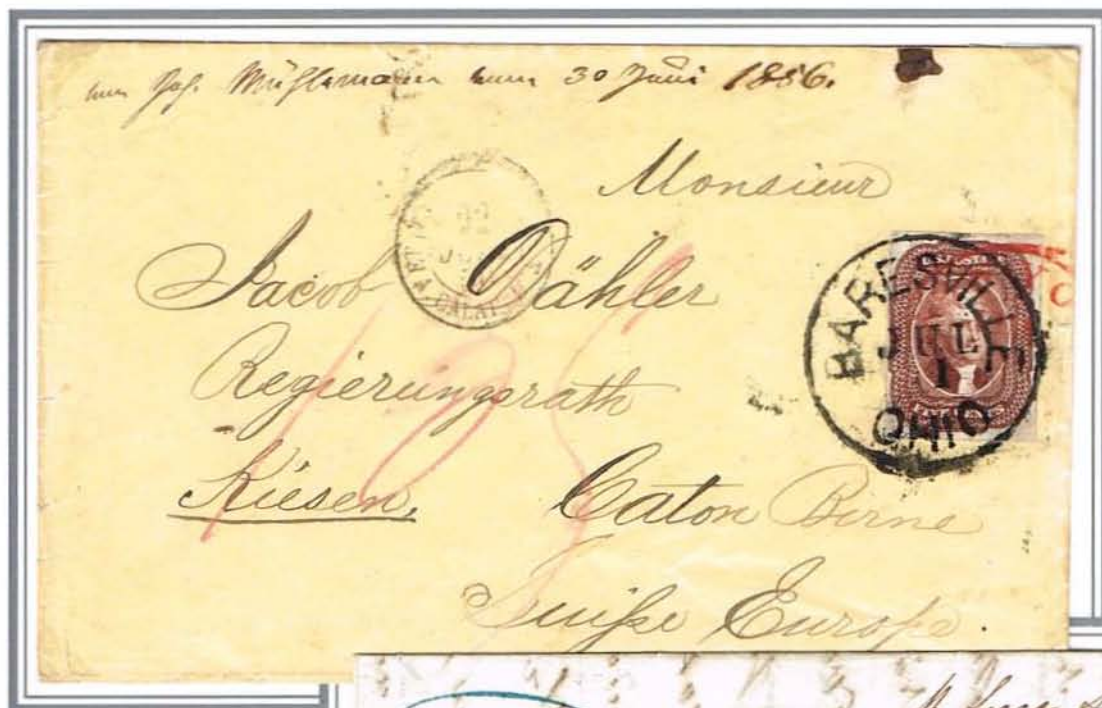 Joh. Mühlemann 30 Juni 1856.
Monsieur
Jacob Dähler
Regierungsrath
Kiesen, Caton Berne
Suiße Europe.
BARESVILLE
JUL
1
OHIO
CALAIS